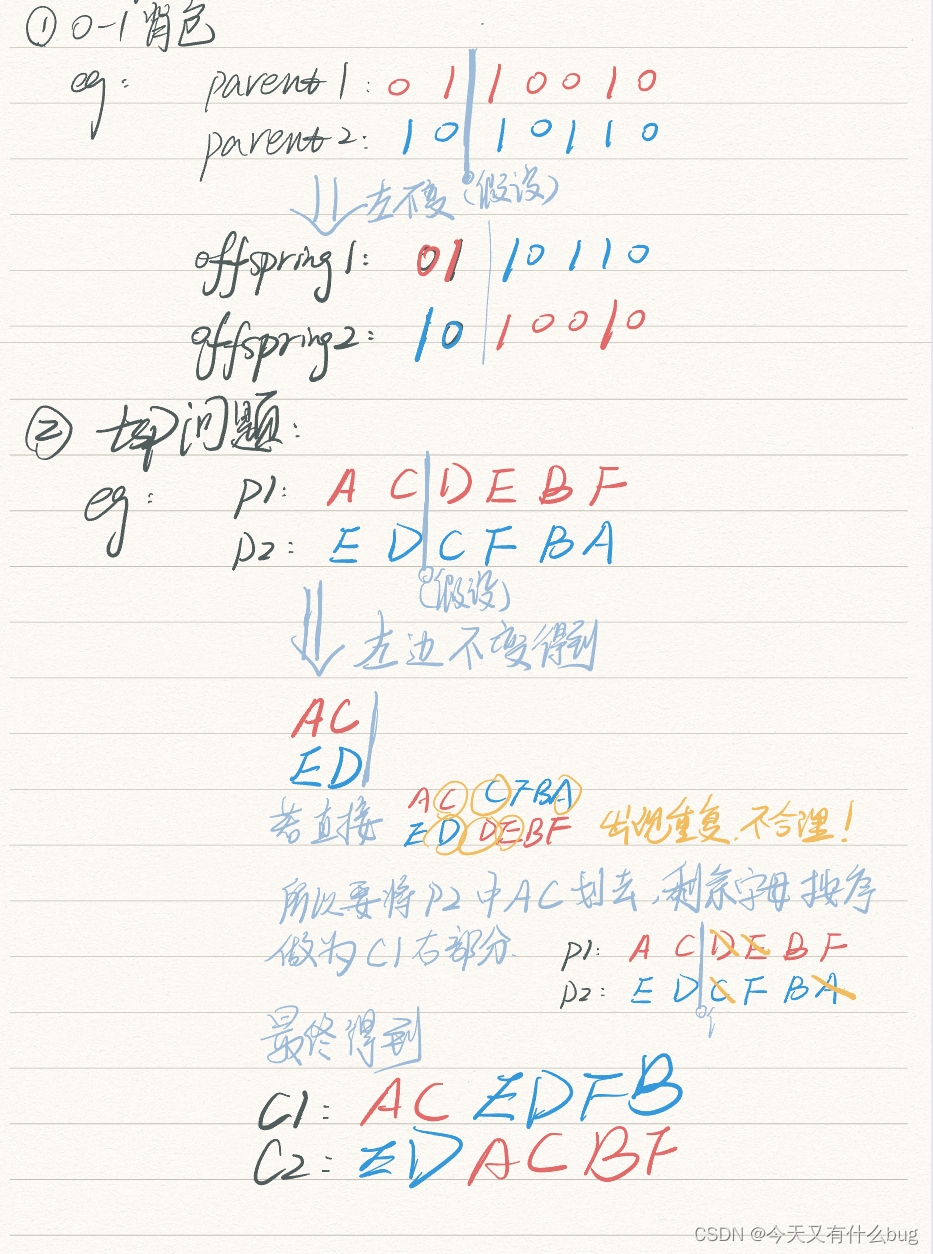 ① 0-1背包
eg: parent1: 0 1 1 0 0 1 0
parent2: 1 0 1 0 1 1 0
左不变 (假设)
offspring1: 01 10110
offspring2: 10 10010
② tsp问题:
eg: p1: A C D E B F
p2: E D C F B A
(假设)
左边不变得到
AC
ED
若直接 AC CFBA
ED DEBF 出现重复,不合理!
所以要将P2中AC划去,剩余字母按序
做为C1右部分.
p1: A C D E B F
p2: E D C F B A
最终得到
C1: AC EDFB
C2: ED ACBF
CSDN @今天又有什么bug